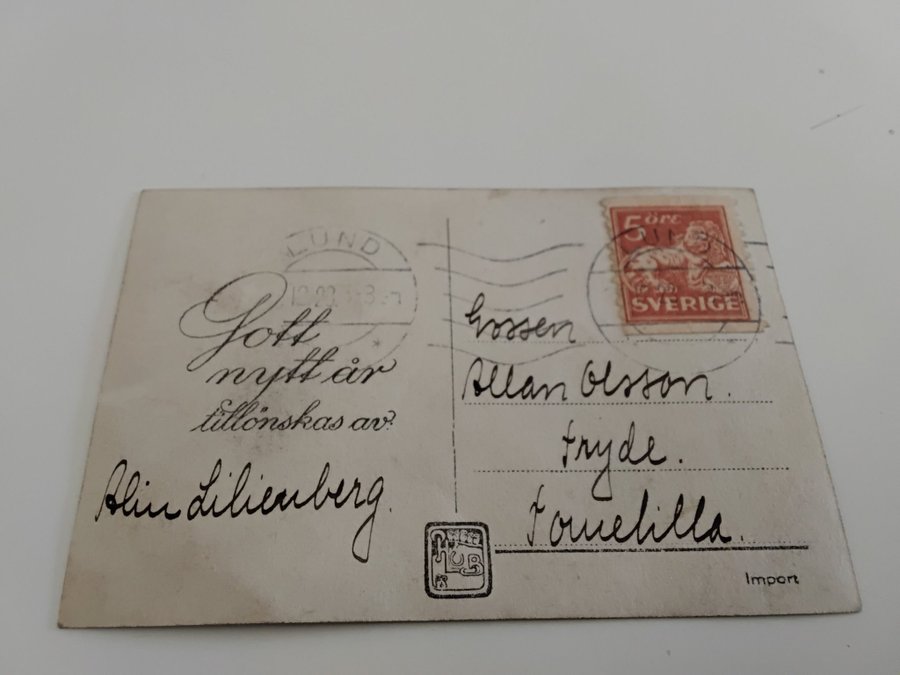 LUND
Gott
nytt år
tillönskas av
Alin Lilienberg.
5 öre
SVERIGE
Gossen
Allan Olsson.
Tryde.
Tomelilla.
Import